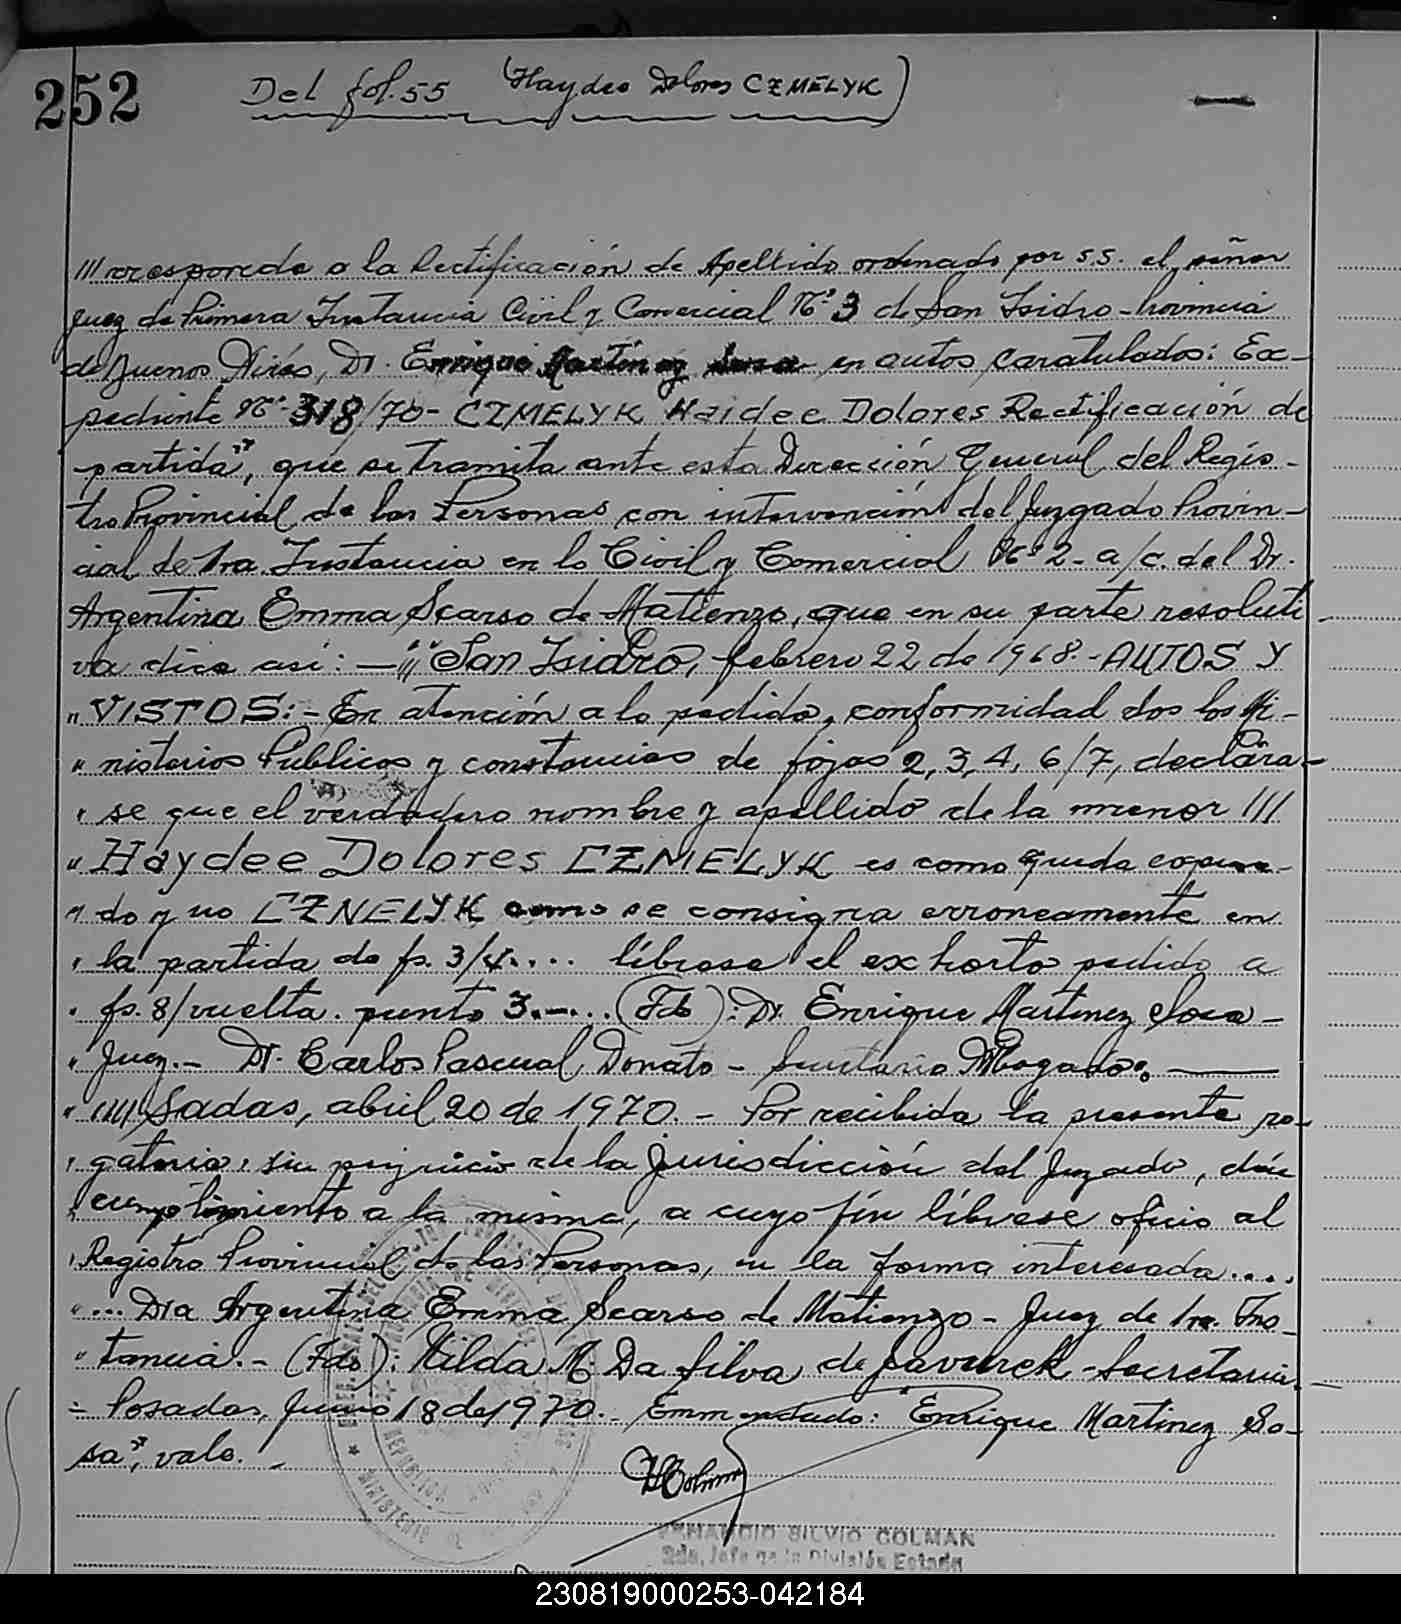 252
Del fol. 55 (Haydee Dolores CZMELYK)
///rresponde a la Rectificación de Apellido ordenado por S.S. el señor
Juez de Primera Instancia Civil y Comercial N° 3 de San Isidro - Provincia
de Buenos Aires, Dr. Enrique Martínez Sosa en autos caratulados: Ex-
pediente N° 318/70 - CZMELYK Haidee Dolores Rectificación de
partida", que se tramita ante esta Dirección General del Regis-
tro Provincial de las Personas con intervención del Juzgado Provin-
cial de 1ra. Instancia en lo Civil y Comercial N° 2 - a/c. del Dr.
Argentina Emma Scarso de Matienzo, que en su parte resoluti-
va dice así: - "/// San Isidro, febrero 22 de 1968 - AUTOS Y
" VISTOS: - En atención a lo pedido, conformidad dos los Mi-
" nisterios Publicos y constancias de fojas 2, 3, 4, 6/7, declára-
" se que el verdadero nombre y apellido de la menor ///
" Haydee Dolores CZMELYK es como queda expresa-
" do y no CZNELYK como se consigna erroneamente en
" la partida de fs. 3/4.... líbrese el exhorto pedido a
" fs. 8/vuelta. punto 3.-... (Fdo): Dr. Enrique Martinez Sosa -
" Juez.- Dr. Carlos Pascual Donato - Secretario Abogado. -
" ////Sadas, abril 20 de 1970. - Por recibida la presente ro-
" gatoria, sin perjuicio de la jurisdicción del Juzgado, dése
" cumplimiento a la misma, a cuyo fín líbrese oficio al
" Registro Provincial de las Personas, en la forma interesada....
" ... Dra Argentina Emma Scarso de Matienzo - Juez de 1ra. Ins-
" tancia. - (Fdo): Nilda M. Da Silva de Javurek - Secretaria.-
- Posadas, Junio 18 de 1970. - Enmendado: Enrique Martinez So-
sa", vale. -
VENANCIO SILVIO COLMAN
2do. Jefe de la División Estado
230819000253-042184